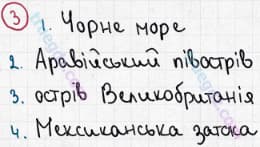 3 1. Чорне море
2. Аравійський півострів
3. острів Великобританія
4. Мексиканська затока